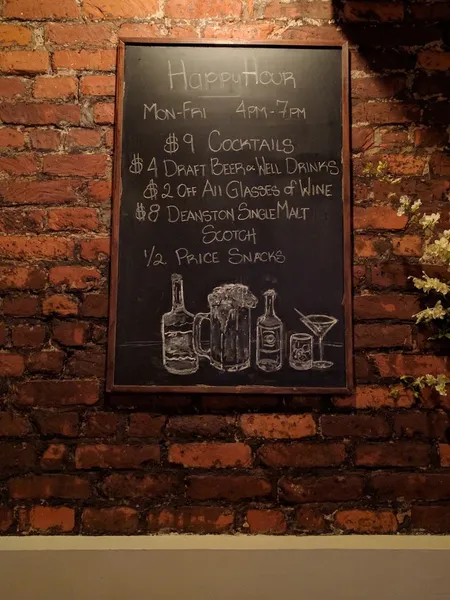 Happy Hour
Mon-Fri 4pm-7pm
$9 Cocktails
$4 Draft Beer or Well Drinks
$2 Off All Glasses of Wine
$8 Deanston Single Malt
Scotch
1/2 Price Snacks